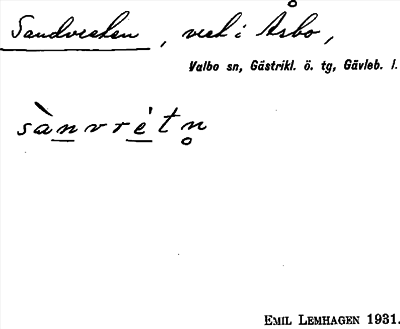 Sandvreten, vret i Åsbo,
Valbo sn, Gästrikl. ö. tg, Gävleb. l.
sànvrèt n̥
EMIL LEMHAGEN 1931.